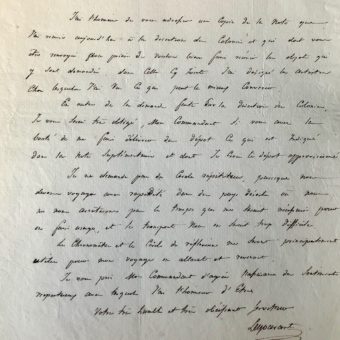 J'ai l'honneur de vous adresser une Copie de la Note que
J'ai remise aujourd'hui à la direction des Colonies et qui doit vous
être envoyée pour prier de vouloir bien faire remise les objets qui
y sont demandés dans Celle Cy J'ai désigné les
chez lesquels J'ai Vu Ce qui peut le mieux Convenir
Ce outre de la demande faite par la direction des Colonies
Je vous serai très obligé, Mon Commandant si vous avez la
bonté de me faire délivrer du dépôt Ce qui est indiqué
dans la Note Supplémentaire et dont Je Crois le dépôt approvisionné
Je ne demande pas de Cercle répétiteur, puisque nous
devons voyager avec rapidité dans des pays où nous
ne nous arrêterons pas le temps que nous serait nécessaire pour
en faire usage, et le transport Nous en serait trop difficile
Le Chronomètre et le Cercle de réflexion me seront principalement
utiles pour mon voyage en allant et revenant.
Je vous prie Mon Commandant d'agréer l'assurance des Sentiments
respectueux avec lesquels J'ai l'honneur d'Etre
Votre très humble et très obéissant serviteur